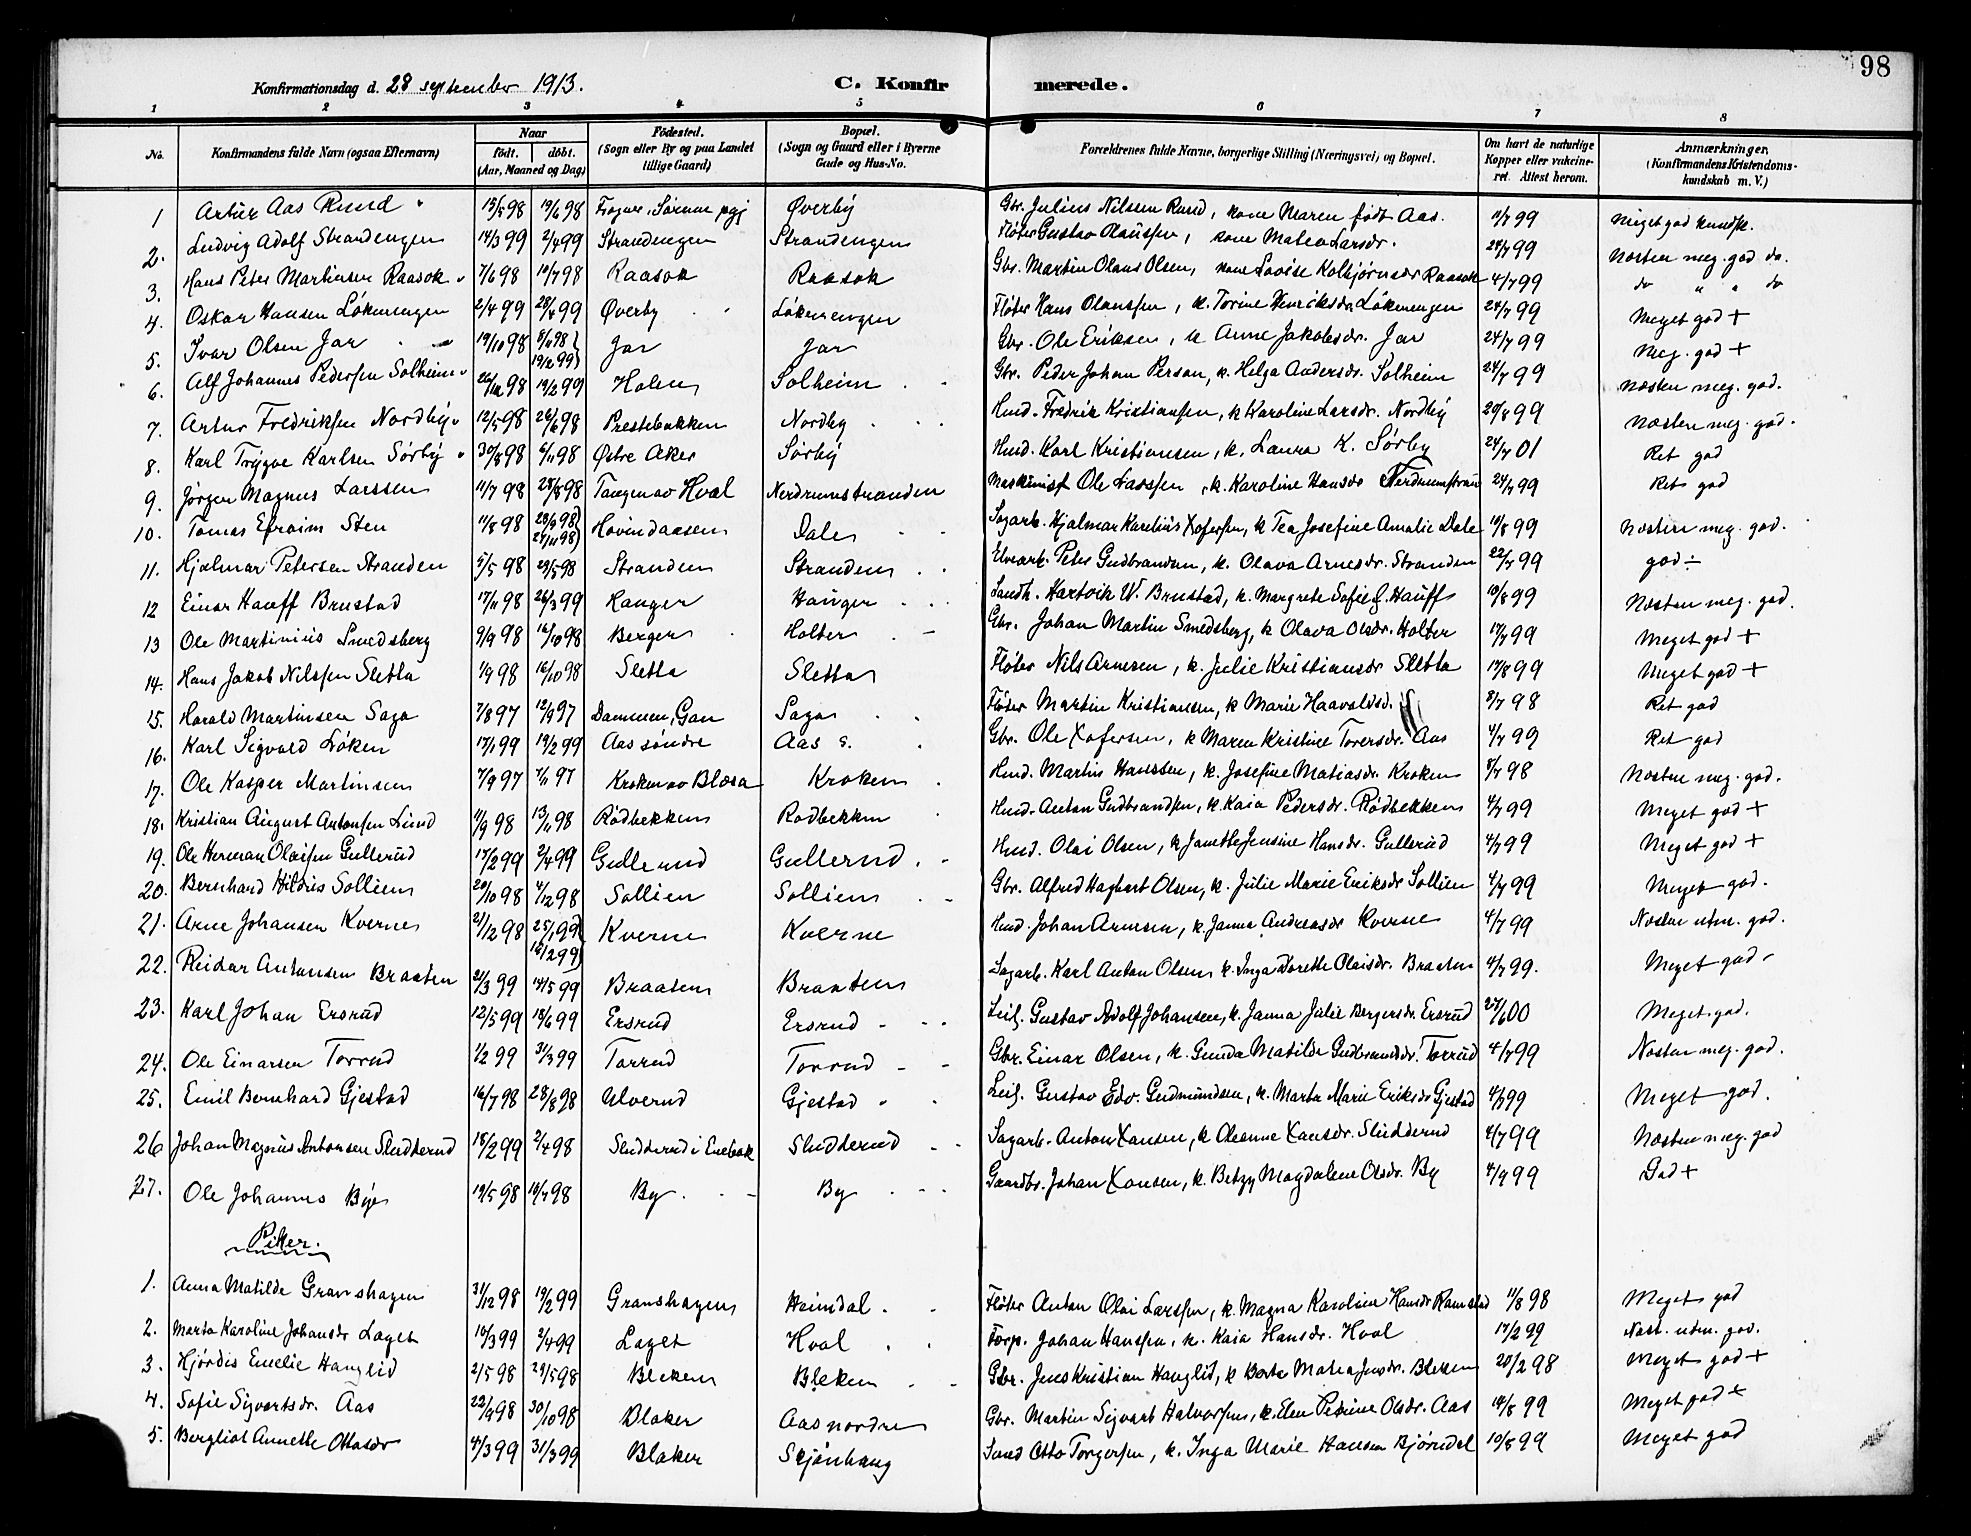 98
Konfirmationsdag d. 28 september 1913. C. Konfir merede.
1 2 3 4 5 6 7 8
No. Konfirmandens fulde Navn (ogsaa Efternavn) Naar födt. döbt. (Aar, Maaned og Dag) Födested. (Sogn eller By og paa Landet tillige Gaard) Bopæl. (Sogn og Gaard eller i Byerne Gade og Hus-No. Forældrenes fulde Navne, borgerlige Stilling (Næringsvei) og Bopæl. Om havt de naturlige Kopper eller vakcineret. Attest herom. Anmærkninger, (Konfirmandens Kristendomskundskab m. V.)
1 Artur Aas Ruud 15/5 98 19/6 98 Fragnr. Sörum pgj Øverby Gbr. Julius Nilssen Ruud, kone Maren født Aas. 11/7 99 Meget god kundsk.
2. Ludvig Adolf Strandengen 14/3 99 2/4 99 Strandengen Strandengen Fløter Gustav Olaussen, kone Mateo Larsdr. 24/7 99 Næsten meg. god do.
3. Hans Peter Martinsen Raasok 7/6 98 10/7 98 Raasok Raasok Gbr. Martin Olaus Olsen, kone Lovise Kolbjørnsdr Raasok 4/7 99 do " " do
4. Oskar Hansen Løkenengen 2/4 99 28/4 99 Øverby Løkenengen Fløter Hans Olaussen, k. Torine Henriksdr. Løkenengen 24/7 99 Meget god +
5. Ivar Olsen Jar 19/10 98 6/11 98 19/2 99 Jar Jar Gbr. Ole Eriksen, k Anne Jakobsdr. Jar 24/7 99 Meg. god +
6. Alf Johannes Pedersen Solheim 26/12 98 19/2 99 Holen Solheim Gbr. Peder Johan Person, k. Helga Andersdr. Solheim 24/7 99 Næsten meg. god.
7. Artur Fredriksen Nordby 12/5 98 26/6 98 Prestebakken Nordby Hmd. Fredrik Kristiansen, k Karoline Larsdr. Nordby 20/8 99 Næsten meg. god.
8. Karl Trygve Karlsen Sørby 30/8 98 6/11 98 Østre Aker Sørby Hmd. Karl Kristiansen, k. Laura K. Sørby 24/7 01 Ret god
9. Jørgen Magnus Larssen 11/7 98 28/8 98 Tangen av Hval Nerdrumstranden Maskinist Ole Larssen, k. Karoline Hansdr Nerdrumstran 24/7 99 Ret god
10. Tomas Efraim Sten 11/8 98 28/9 98 27/11 98 Hovindaasen Dalen Sagarb. Hjalmar Karelius Xofersen, k Tea Josefine Amalie Dale 10/8 99 Næsten meg. god.
11. Hjalmar Petersen Stranden 5/5 98 29/5 98 Stranden Stranden Elvearb. Peter Gudbrandsen, k. Olava Arnesdr. Stranden 22/7 99 god ÷
12 Einar Hauff Brustad 17/11 98 26/3 99 Hauger Hauger Landh. Hartvik W. Brustad, k. Margrete Sofie f. Hauff 10/8 99 Næsten meg. god.
13 Ole Martinius Smedsberg 9/9 98 16/10 98 Berger Holter Gbr. Johan Martin Smedsberg, k Olava Olsdr. Holter 17/7 99 Meget god +
14. Hans Jakob Nilssen Sletta 1/9 98 16/10 98 Sletta Sletta Fløter Nils Arnesen, k. Julie Kristiansdr Sletta 17/8 99 Meget god +
15. Harald Martinsen Saga 7/8 97 12/9 97 Dammen, Gan Saga Fløter Martin Kristiansen, k Marie Haavoldsd. 8/7 98 Ret god
16. Karl Sigvald Løken 17/1 99 19/2 99 Aas søndre Aas s. Gbr. Ole Xofersen, k Maren Kristine Toversdr. Aas 4/7 99 Ret god
17. Ole Kasper Martinsen 7/9 97 7/11 97 Kroken av Blæsa Kroken Hmd. Martin Hanssen, k. Josefine Matiasdr. Kroken 8/7 98 Næsten meg. god.
18. Kristian August Antonsen Lund 11/9 98 13/11 98 Rødbekken Rødbekken Hmd. Anton Gudbrandsen, k. Kaia Pedersdr. Rødbekken 4/7 99 Meget god +
19. Ole Herman Olaisen Gullerud 17/2 99 2/4 99 Gullerud Gullerud Hmd. Olai Olsen, k Janette Jensine Hansdr. Gullerud 4/7 99 Meget god +
20. Bernhard Hildris Sollien 20/10 98 4/12 98 Sollien Sollien Gbr. Alfred Hagbart Olsen, k. Julie Marie Eriksdr Sollien 4/7 99 Meget god.
21. Arne Johansen Kverne 21/12 98 25/1 99 12/2 99 Kverne Kverne Hmd. Johan Arnesen, k. Janna Andreasdr Kverne 4/7 99 Næsten utm. god.
22. Reidar Antonsen Braaten 21/3 99 14/5 99 Braaten Braaten Sagarb. Karl Anton Olsen k. Inga Dorette Olaisdr. Braaten 4/7 99. Meget god
23. Karl Johan Ersrud 12/5 99 18/6 99 Ersrud Ersrud Leil. Gustav Adolf Johansen, k. Janna Julie Bergersdr. Ersrud 27/6 00 Meget god.
24. Ole Einarsen Torrud 1/2 99 31/3 99 Torrud Torrud Gbr. Einar Olsen, k. Gunda Matilde Gudbrandsdr. Torrud 4/7 99 Næsten meg. god.
25. Emil Bernhard Gjestad 16/7 98 28/8 98 Ulverud Gjestad Leil. Gustav Edv. Gudmundsen, k. Marta Marie Eriksdr Gjestad 4/7 99 Meget god.
26 Johan Magnus Antonsen Sludderud 18/2 99 2/4 98 Sludderud i Enebak Sludderud Sagarb. Anton Xansen, k Oleanne Xansdr. Sludderud 4/7 99 Næsten meg. god
27. Ole Johannes Bye 19/5 98 10/7 98 By By Gaardbr. Johan Xansen, k. Betzy Magdalene Olsdr. By 4/7 99 God +
Piker.
1. Anna Matilde Granshagen 31/12 98 19/2 99 Granshagen Heimdal Fløter Anton Olai Larssen, k. Magna Karoline Hansdr Ramstad 11/8 98 Meget god
2. Marta Karoline Johansdr Laget 10/3 99 2/4 99 Laget Hval Forp. Johan Hanssen, k. Kaia Hansdr. Hval 17/2 99 Næst. utm. god.
3. Hjørdis Emelie Hanglid 2/5 98 29/5 98 Bleken Bleken Gbr. Jens Kristian Hanglid, k Berte Matea Jensdr. Bleken 20/2 98 Meget god +
4. Sofie Sigvartsdr. Aas 22/9 98 30/10 98 Blaker Aas nordre Gbr. Martin Sigvart Halvorsen, k. Elen Petrine Olsdr. Aas 14/8 99 Meget god +
5. Bergliot Annette Ottosdr 4/3 99 31/3 99 Blaker Skjønhaug Smed Otto Torgersen, k. Inga Marie Hansen Bjørndal 10/8 99 Meget god